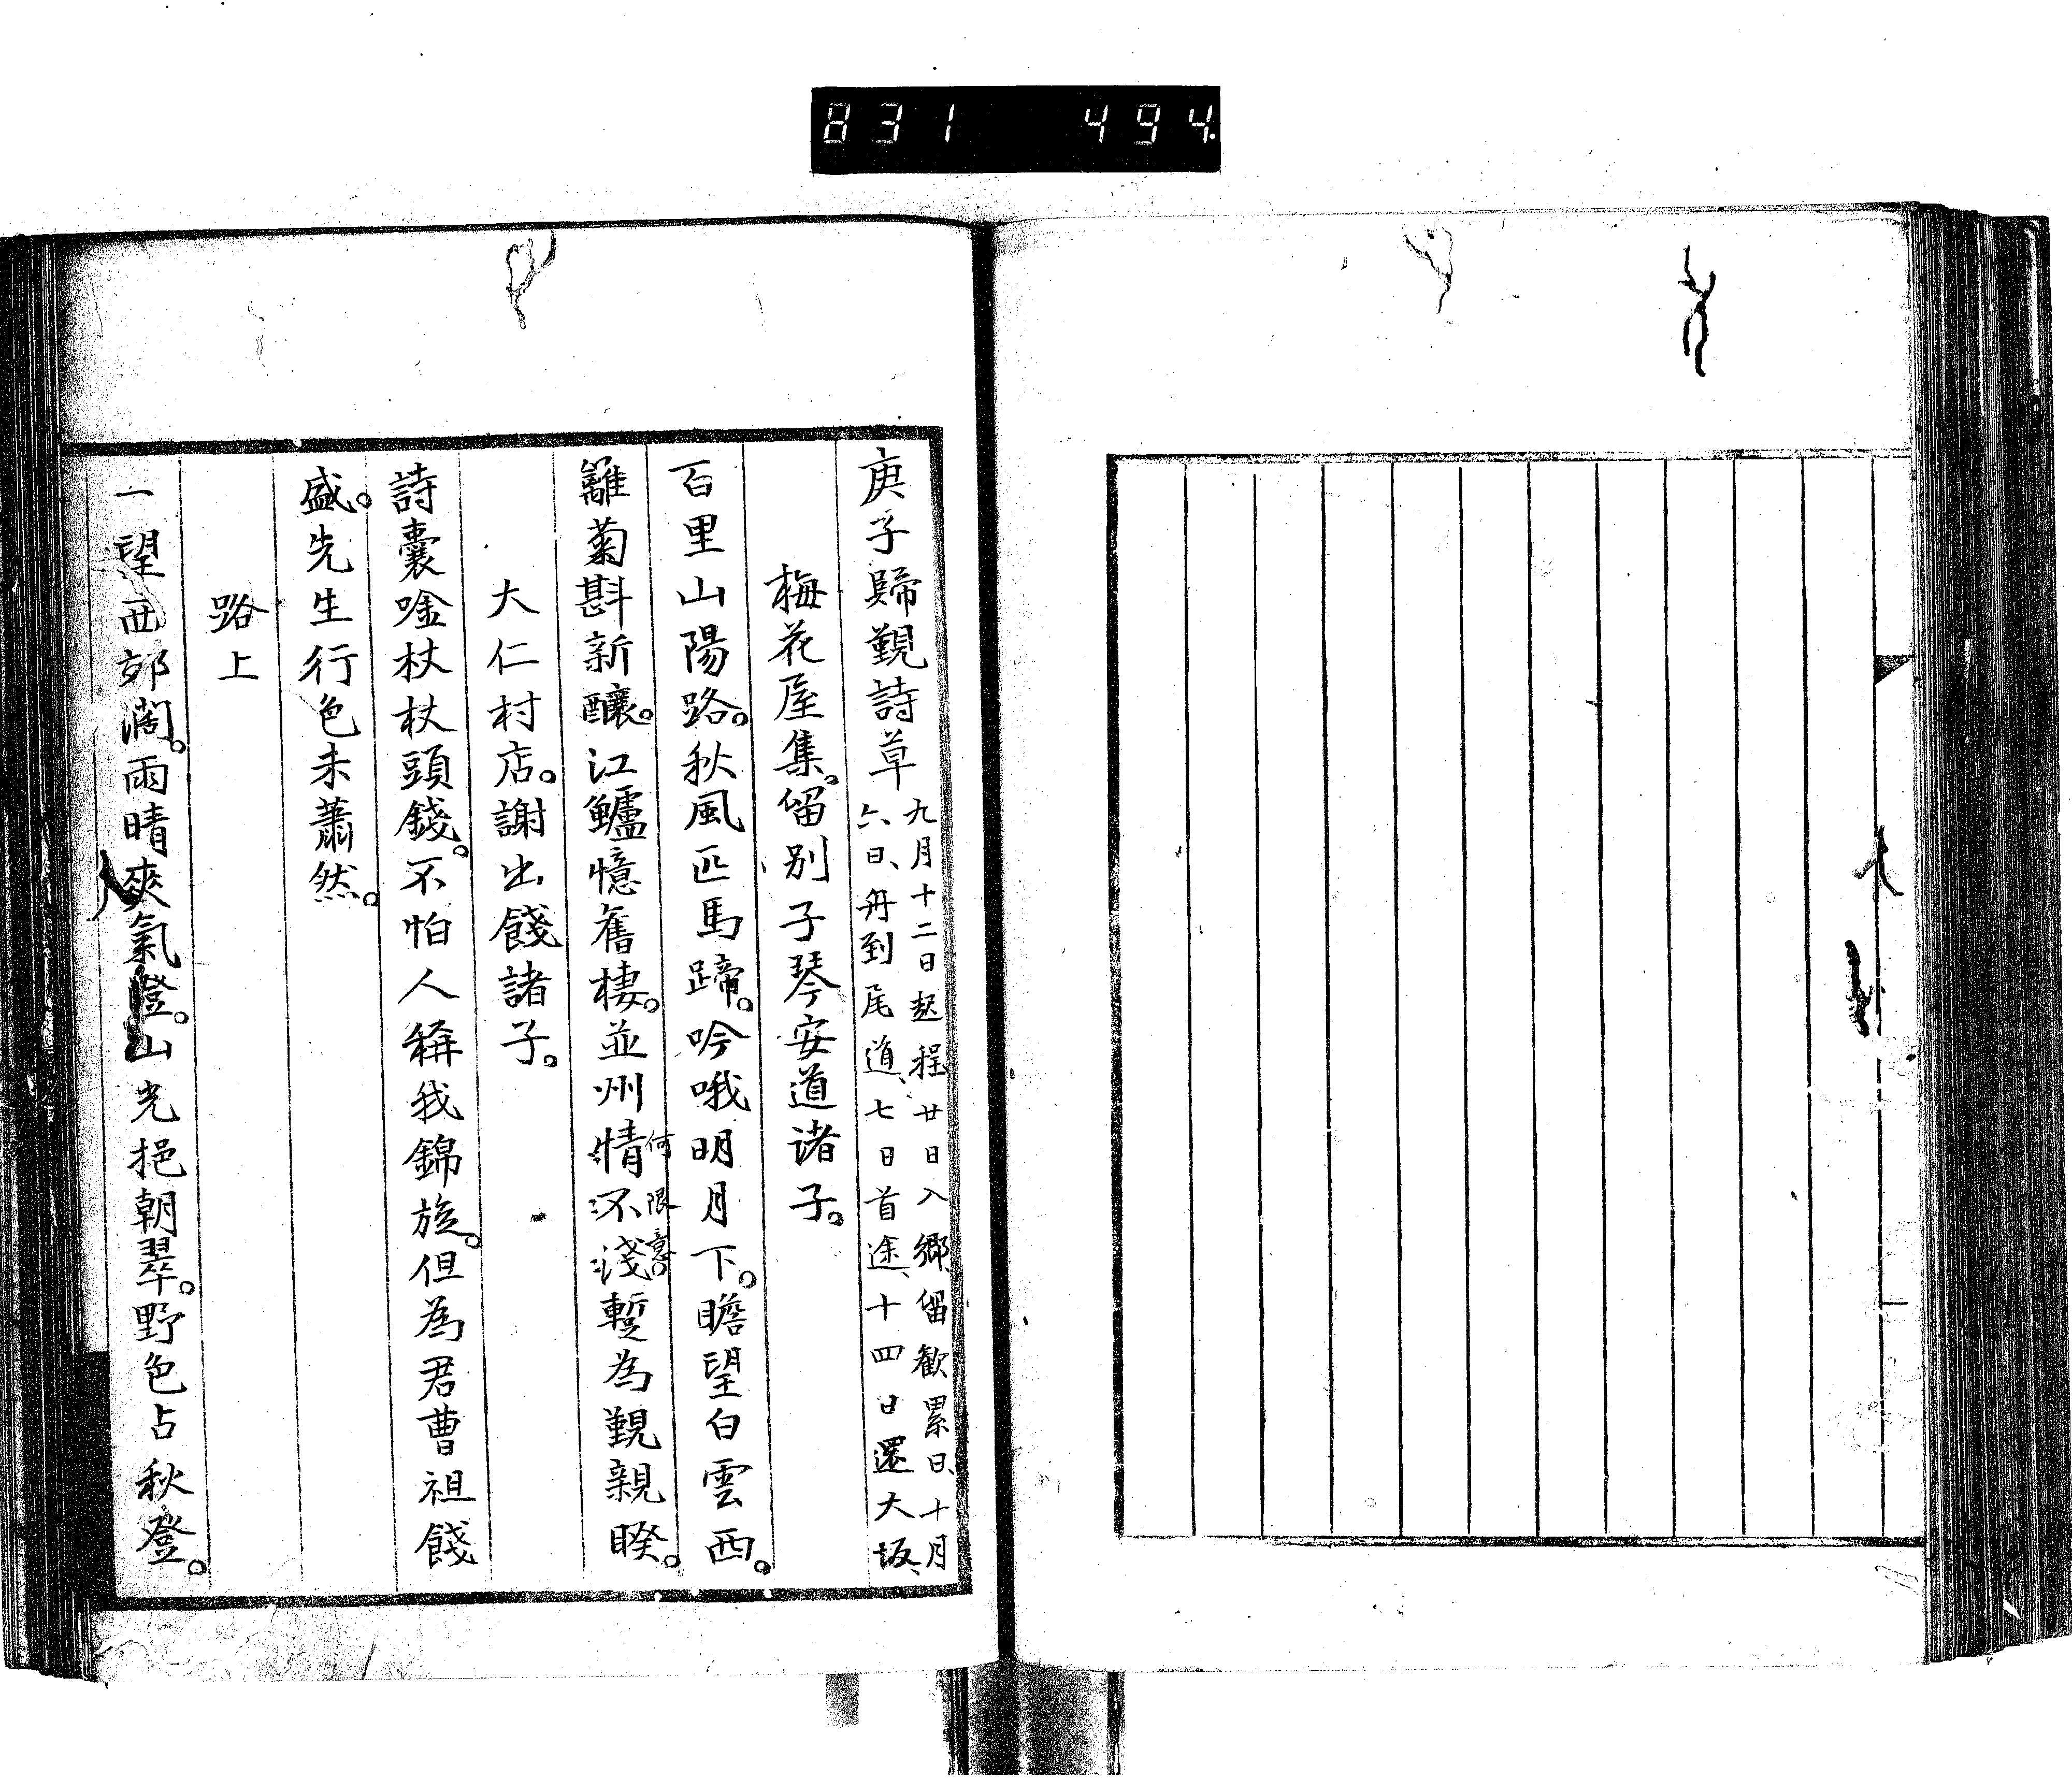 831 494
庚子歸覲詩草 九月十二日起程廿日入鄉留歡累日、十月
六日、舟到尾道、七日首途、十四日還大坂、
梅花屋集。留別子琴安道诸子。
百里山陽路。秋風匹馬蹄。吟哦明月下。瞻望白雲西。
籬菊斟新釀。江鱸憶舊棲。並州情不淺暫為覲親睽。
何限意。
大仁村店。謝出餞諸子。
詩囊唫杖杖頭錢。不怕人稱我錦旋。但為君曹祖餞
盛。先生行色未蕭然。
路上
一望西郊濶。雨晴爽氣澄。山光挹朝翠。野色占秋登。